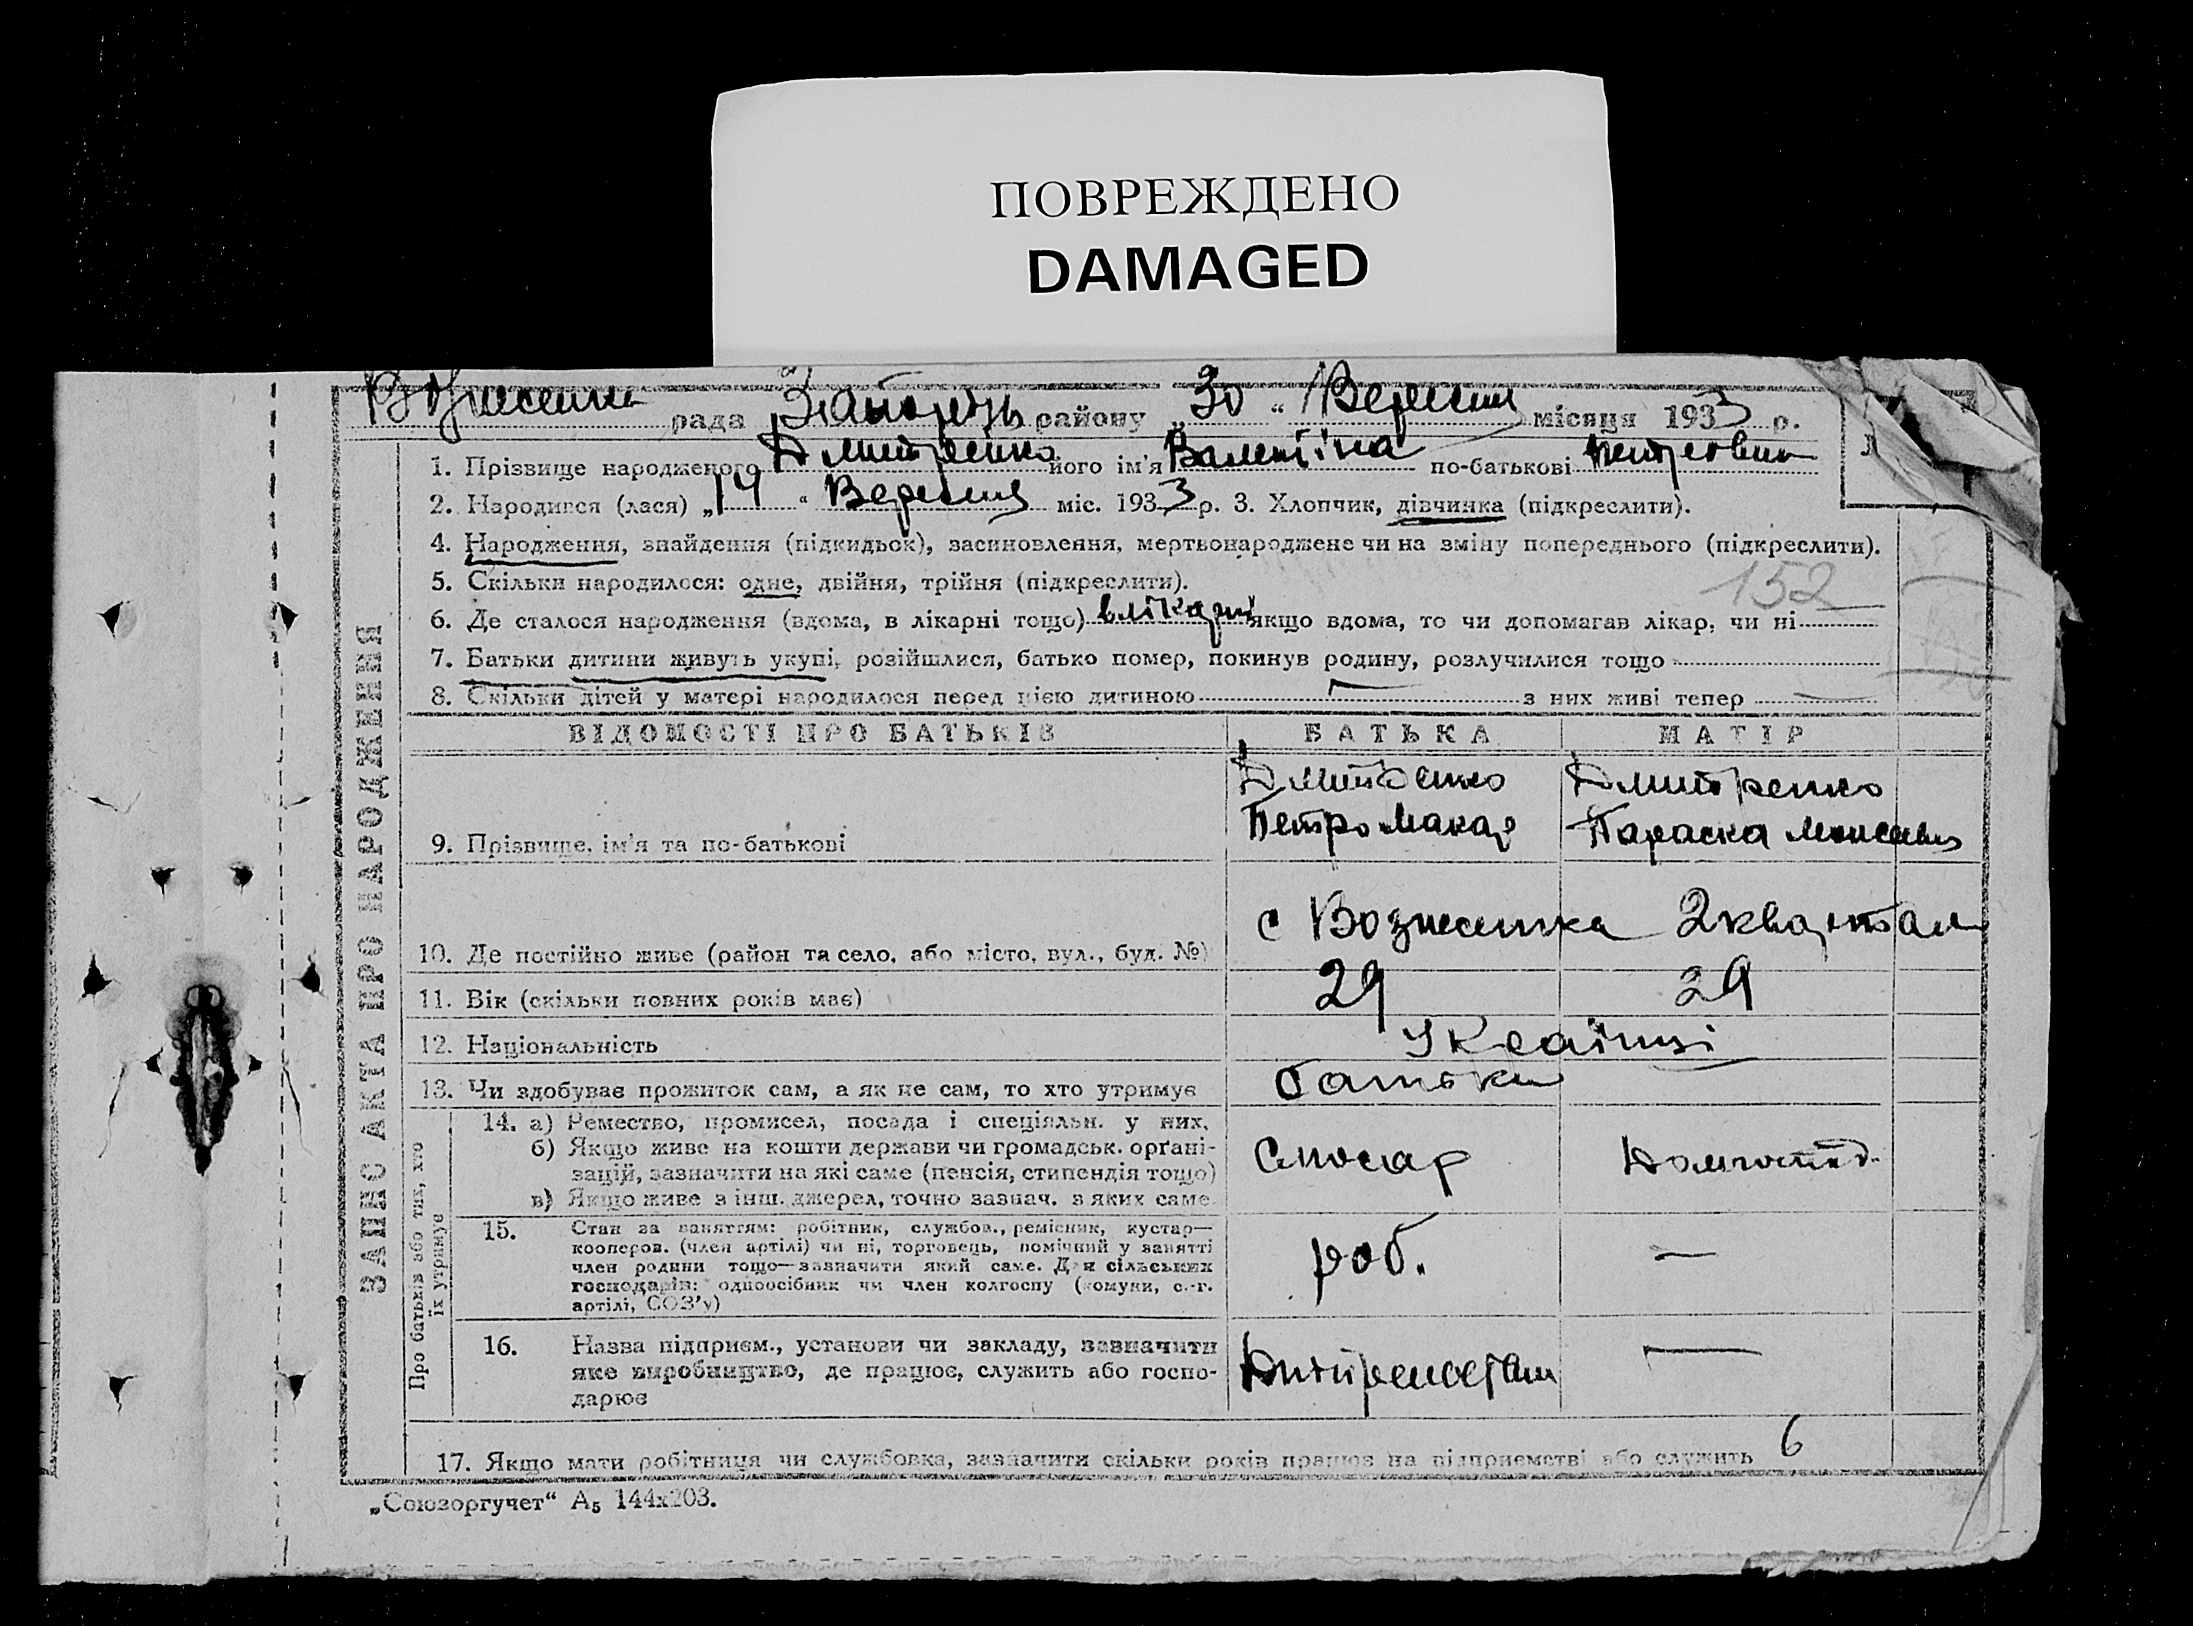 ПОВРЕЖДЕНО
DAMAGED
рада район у „30“ Вересня місяця 1933 р.
1. Прізвище народженого Дмитренко його ім'я Валентіна по-батькові
2. Народився (лася) „14“ Вересня міс. 1933 р. 3. Хлопчик, дівчинка (підкреслити).
4. Народження, знайдення (підкидьок), засиновлення, мертвонароджене чи на зміну попереднього (підкреслити).
152
5. Скільки народилося: одне, двійня, трійня (підкреслити).
6. Де сталося народження (вдома, в лікарні тощо) в лікарні якщо вдома, то чи допомагав лікар, чи ні —
7. Батьки дитини живуть укупі, розійшлися, батько помер, покинув родину, розлучилися тощо
8. Скільки дітей у матері народилося перед цією дитиною — з них живі тепер —
ЗАПИС АКТА ПРО НАРОДЖЕННЯ
ВІДОМОСТІ ПРО БАТЬКІВ БАТЬКА МАТІР
9. Прізвище, ім'я та по-батькові Дмитренко Петро Макар Дмитренко Параска
10. Де постійно живе (район та село, або місто, вул., буд. №) с Вознесенка 2 квартал
11. Вік (скільки повних років має) 29 29
12. Національність Українці
13. Чи здобуває прожиток сам, а як не сам, то хто утримує батьки
Про батьків або тих, хто їх утримує
14. а) Ремество, промисел, посада і спеціяльн. у них.
б) Якщо живе на кошти держави чи громадськ. орґані-
зацій, зазначити на які саме (пенсія, стипендія тощо) Слюсар Домгоспод.
в) Якщо живе з інш. джерел, точно зазнач. з яких саме
15. Стан за заняттям: робітник, службов., ремісник, кустар—
кооперов. (член артілі) чи ні, торговець, помічний у занятті
член родини тощо—зазначити який саме. Для сільських роб. —
господарів: одноосібник чи член колгоспу (комуни, с.-г.
артілі, СОЗ'у)
16. Назва підприєм., установи чи закладу, зазначити
яке виробництво, де працює, служить або госпо- —
дарює
17. Якщо мати робітниця чи службовка, зазначити скільки років працює на підприємстві або служить 6
„Союзоргучет“ А5 144х203.